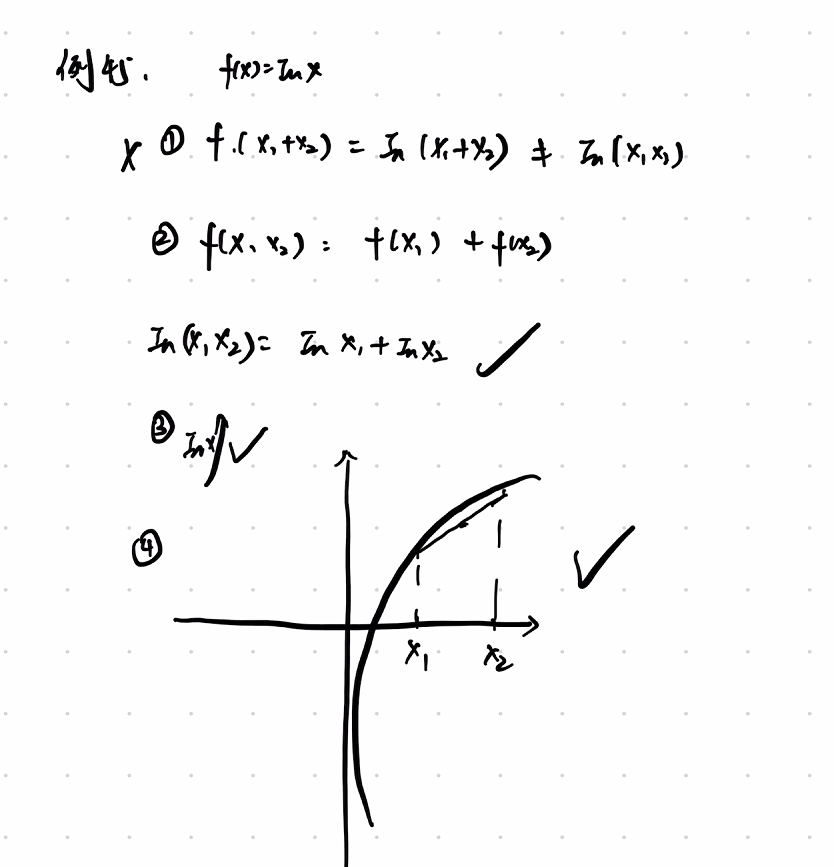 例4. f(x)=ln x
X ① f.(x₁+x₂) = ln (x₁+x₂) ≠ ln(x₁x₂)
② f(x₁x₂) = f(x₁) + f(x₂)
ln(x₁x₂) = ln x₁ + ln x₂ ✓
③ ln x ↑ ✓
④ ✓
x₁ x₂